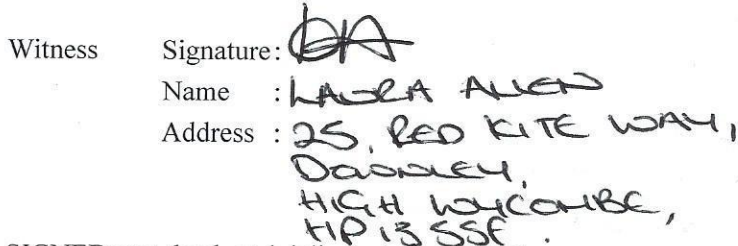 Witness Signature:
Name : LAURA ALLEN
Address : 25, RED KITE WAY,
DOWNLEY,
HIGH WYCOMBE,
HP13 5SF.
SIGNED